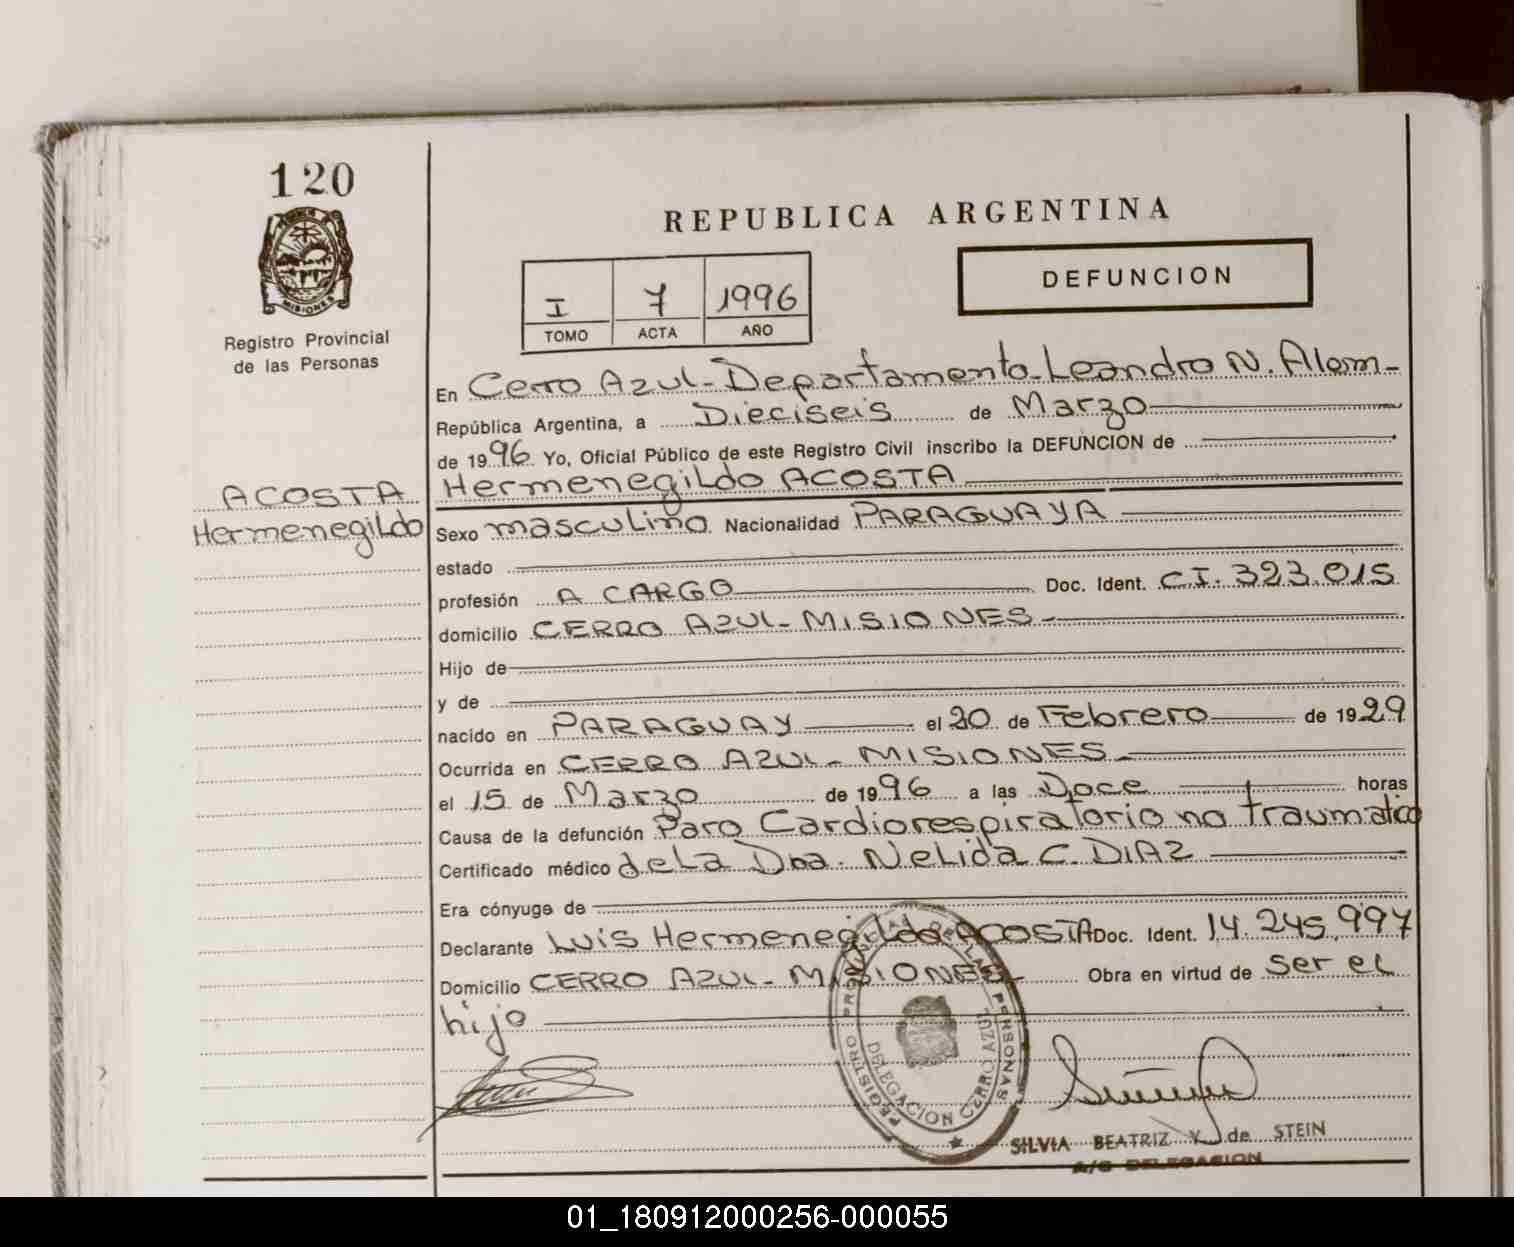 120
MISIONES
Registro Provincial
de las Personas
REPUBLICA ARGENTINA
I 7 1996
TOMO ACTA AÑO
DEFUNCION
En Cerro Azul - Departamento - Leandro N. Alem -
República Argentina, a Dieciseis de Marzo
de 1996 Yo, Oficial Público de este Registro Civil inscribo la DEFUNCION de
ACOSTA
Hermenegildo
Hermenegildo ACOSTA
Sexo masculino Nacionalidad PARAGUAYA
estado
profesión A CARGO Doc. Ident. C.I. 323.015
domicilio CERRO AZUL - MISIONES -
Hijo de
y de
nacido en PARAGUAY el 20 de Febrero de 1929
Ocurrida en CERRO AZUL - MISIONES -
el 15 de Marzo de 1996 a las Doce horas
Causa de la defunción Paro Cardiorespiratorio no traumatico
Certificado médico de La Dra. Nelida C. DIAZ
Era cónyuge de
Declarante Luis Hermenegildo ACOSTA Doc. Ident. 14.245.997
Domicilio CERRO AZUL - MISIONES - Obra en virtud de ser el
hijo
REGISTRO PROVINCIAL DE LAS PERSONAS
DELEGACION CERRO AZUL
SILVIA BEATRIZ K. de STEIN
A/C DELEGACION
01_180912000256-000055